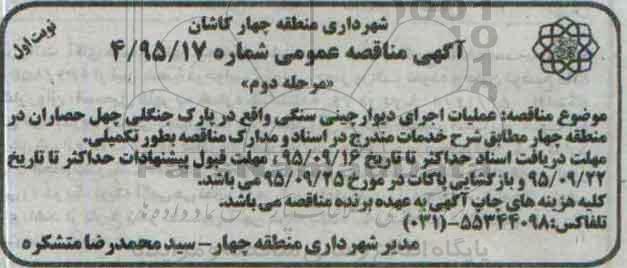 نوبت اول
شهرداری منطقه چهار کاشان
آگهی مناقصه عمومی شماره ۴/۹۵/۱۷
«مرحله دوم»
موضوع مناقصه: عملیات اجرای دیوار چینی سنگی واقع در پارک جنگلی چهل حصاران در
منطقه چهار مطابق شرح خدمات مندرج در اسناد و مدارک مناقصه بطور تکمیلی.
مهلت دریافت اسناد حداکثر تا تاریخ ۹۵/۰۹/۱۶ ، مهلت قبول پیشنهادات حداکثر تا تاریخ
۹۵/۰۹/۲۲ و بازگشایی پاکات در مورخ ۹۵/۰۹/۲۵ می باشد.
کلیه هزینه های چاپ آگهی به عهده برنده مناقصه می باشد.
تلفاکس: ۵۵۳۴۴۰۹۸-(۰۳۱)
مدیر شهرداری منطقه چهار – سید محمدرضا متشکره